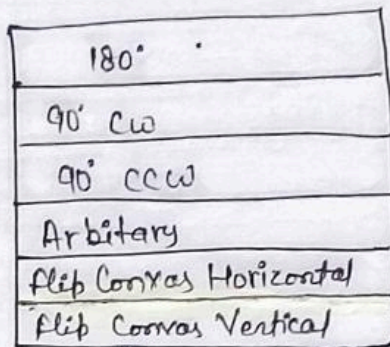 180°
90° CW
90° CCW
Arbitary
flip Convas Horizontal
flip Convas Vertical